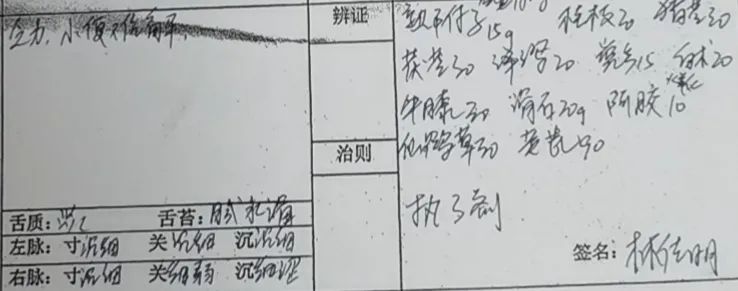 乏力,小便难解
辨证
熟附子15g 桂枝20 猪苓30
茯苓30 泽泻20 15 白术20
牛膝30 滑石20g 阿胶10
仙鹤草30 黄芪90
治则
执3剂
舌质:淡 舌苔:腻水滑
左脉:寸沉细 关沉细 沉沉细
右脉:寸沉细 关细弱 沉细涩
签名:林佳明